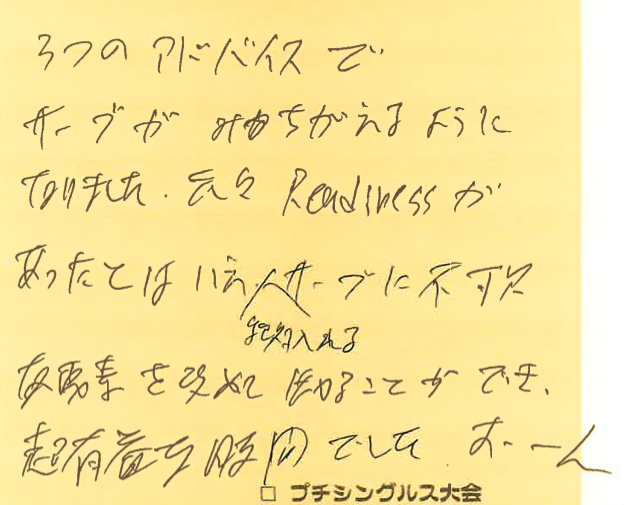 3つのアドバイスで
サーブがみちがえるように
なりました。元々Readinessが
あったとはいえ、サーブに不可欠
絶対入れる
な要素を改めて知ることができ、
超有益な時間でした。すーーん
□ プチシングルス大会